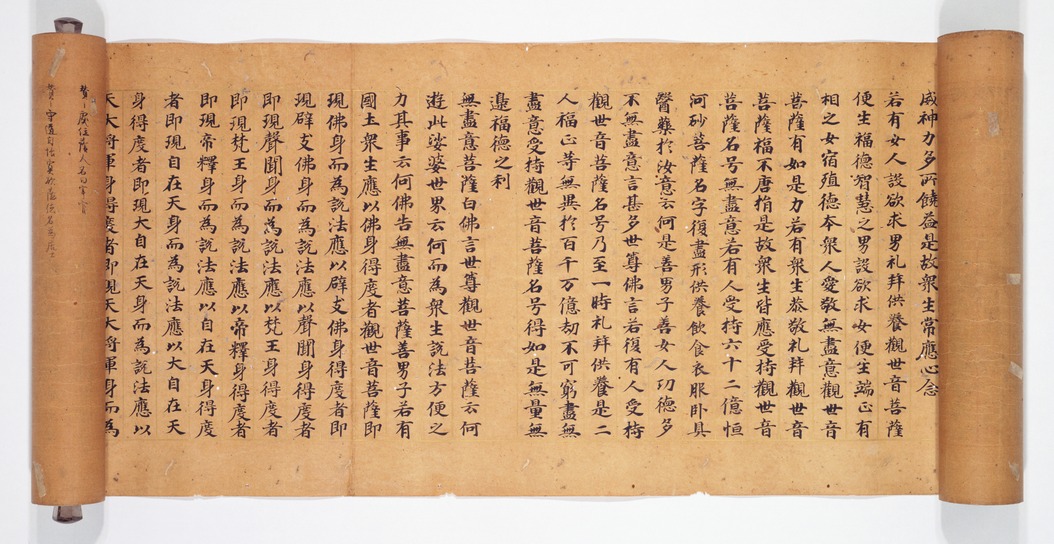 威神力多所饒益是故衆生常應心念
若有女人設欲求男礼拜供養觀世音菩薩
便生福德智慧之男設欲求女便生端正有
相之女宿殖德本衆人愛敬無盡意觀世音
菩薩有如是力若有衆生恭敬礼拜觀世音
菩薩福不唐捐是故衆生皆應受持觀世音
菩薩名号無盡意若有人受持六十二億恒
河砂菩薩名字復盡形供養飲食衣服卧具
醫藥於汝意云何是善男子善女人功德多
不無盡意言甚多世尊佛言若復有人受持
觀世音菩薩名号乃至一時礼拜供養是二
人福正等無異於百千万億劫不可窮盡無
盡意受持觀世音菩薩名号得如是無量無
邊福德之利
無盡意菩薩白佛言世尊觀世音菩薩云何
遊此娑婆世界云何而為衆生說法方便之
力其事云何佛告無盡意菩薩善男子若有
國土衆生應以佛身得度者觀世音菩薩即
現佛身而為說法應以辟支佛身得度者即
現辟支佛身而為說法應以聲聞身得度者
即現聲聞身而為說法應以梵王身得度者
即現梵王身而為說法應以帝釋身得度者
即現帝釋身而為說法應以自在天身得度
者即現自在天身而為說法應以大自在天
身得度者即現大自在天身而為說法應以
天大將軍身得度者即現天大將軍身而為